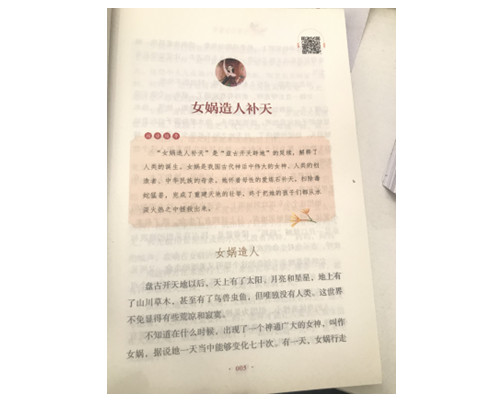 女娲造人补天
阅读指导
“女娲造人补天”是“盘古开天辟地”的延续，解释了
人类的诞生。女娲是我国古代神话中伟大的女神，人类的创
造者，中华民族的母亲，她怀着母性的爱炼石补天，扫除毒
蛇猛兽，完成了重建天地的壮举，终于把她的孩子们都从水
深火热之中拯救出来。
女娲造人
盘古开天地以后，天上有了太阳、月亮和星星，地上有
了山川草木，甚至有了鸟兽虫鱼，但唯独没有人类，这世界
不免显得有些荒凉和寂寞。
不知道在什么时候，出现了一个神通广大的女神，叫作
女娲，据说她一天当中能够变化七十次。有一天，女娲行走
·005·